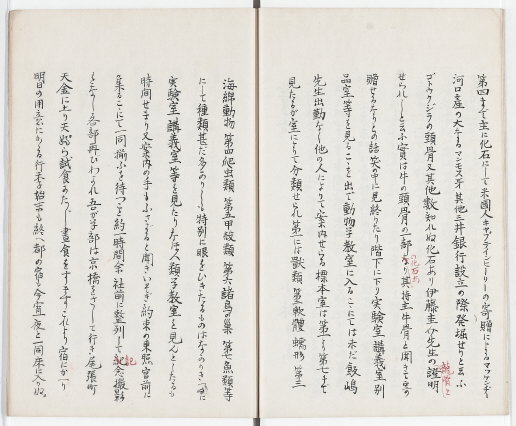 第四まで主に化石にして米國人キャプテインミーリーの寄贈によるマッケンヂー
河口産の大なるマンモス牙其他三井銀行設立の際発堀せりと云ふ
ゴトウクジラの頭骨又其他数知れぬ化石あり伊藤圭介先生の證明
せられしと云ふ宝は牛の頭骨の一部
化石あ
なり其持主牛骨と聞きて
龍骨と
贈せるなりとの話
の中に見終りたり階下に下り実験室講義室別
品室等を見るここを出て動物学教室に入るここにては未だ飯嶋
先生出勤なく他の人によりて案内せらる標本室は第一より第七まで
見たるが室によりて分類せられ第一には獣類第二軟體蠕形第三
海綿動物第四爬虫類第五甲殻類第六諸鳥の巣第七魚類等
にして種類甚だ多なりしも特別に眼をひきたるものはなかりき
実験室講義室等を見たり夫より人類学教室を見んとしたるも
時間せまり又案内の手もふさがると聞きいそぎ約束の東照宮前に
集るここにて一同の揃ふを待つこと約一時間余社前に整列して紀念撮影
記
をなし各部再びわかれ吾が子部は京橋をさして行き尾張町
天金に上り天ぷらを試食
晝食をすます
これより宿にかへり
明日の用意
行李
始末も終へ都の宿も今宵一夜と一同床に入りぬ